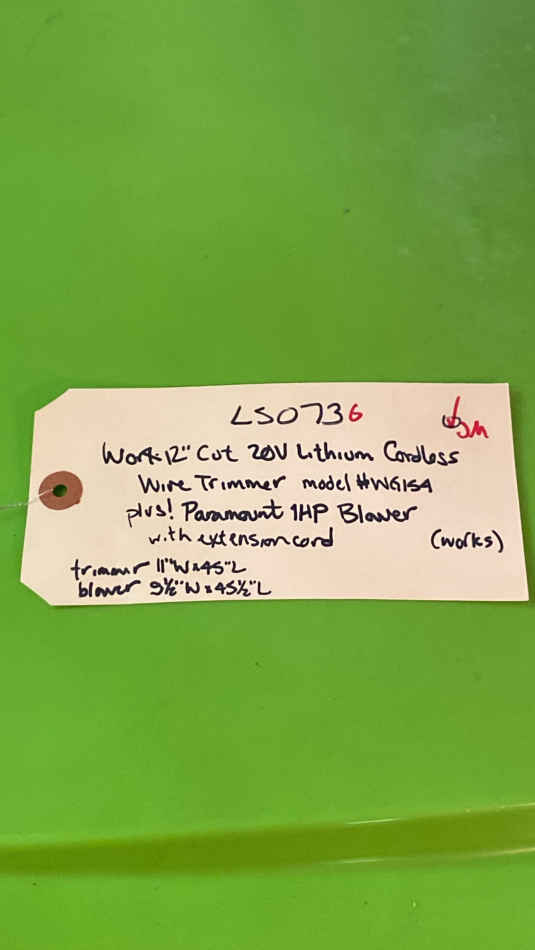 LSO736
Work 12" Cut 20V Lithium Cordless
Wire Trimmer model #WG154
plus! Paramount 1HP Blower
with extension cord (works)
trimmer 11"W x 45"L
blower 9½"W x 45½"L